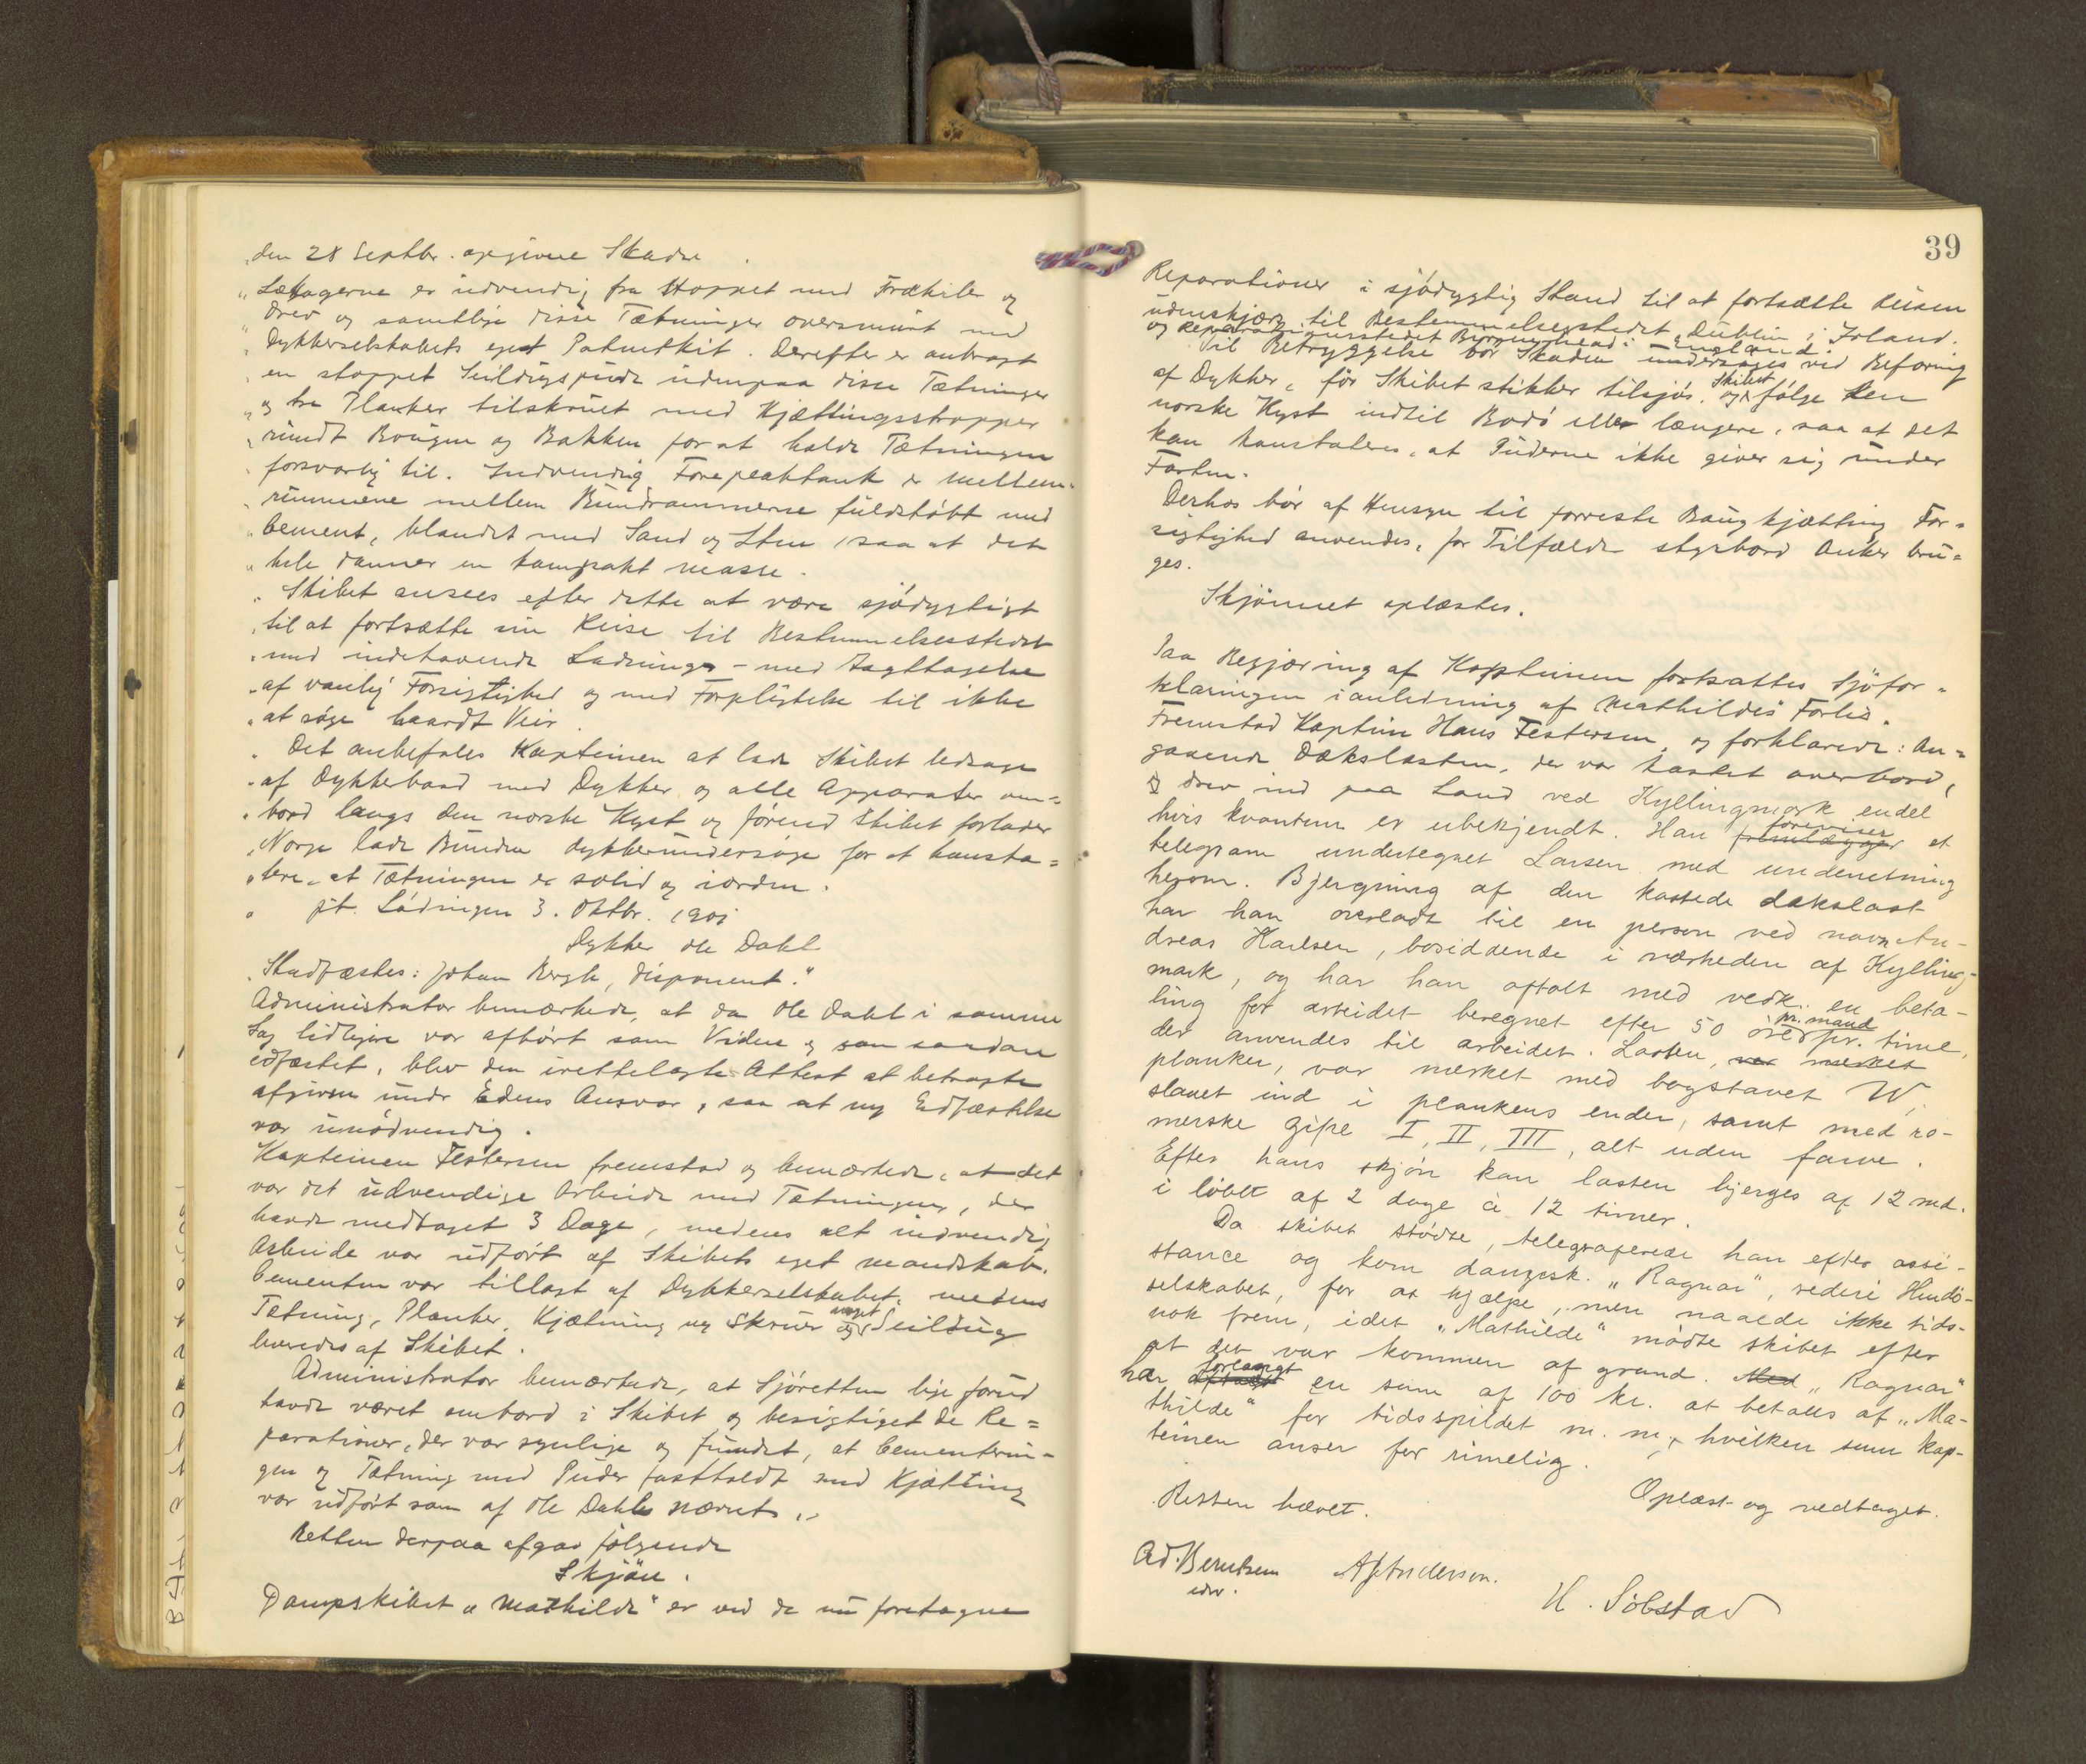 „den 28 Septbr. opgivne Skader.
„Lækagerne er udvendig fra stoppet med Trækiler og
„Drev og samtlige disse Tætninger oversmurt med
„Dykkerselskabets eget Patentkit. Derefter er anbragt
„en stoppet Seildugspude udenpaa disse Tætninger
„og tre Planker tilskruet med Kjættingsstropper
„rundt Bougen og Bakken for at holde Tætningen
„forsvarlig til. Indvendig Forepeaktank er mellem-
„rummene mellem Bundrammerne fuldstøbt med
„Cement, blandet med Sand og Sten, saa at det
„hele danner en kompakt masse.
„Skibet ansees efter dette at være sjødygtigt
„til at fortsætte sin Reise til Bestemmelsesstedet
„med indehavende Ladninger – med Iagttagelse
„af vanlig Forsigtighed og med Forpligtelse til ikke
„at søge haardt Veir.
„Det anbefales Kapteinen at lade Skibet ledsage
„af Dykkebaad med Dykker og alle Apparater om=
„bord langs den norske Kyst og førend Skibet forlader
„Norge lade Bunden dykkerundersøge for at konsta=
„tere, at Tætningen er solid og iorden.
„ pt. Lødingen 3. Oktbr. 1901
Dykker Ole Dahl
„Stadfæstes: Johan Bergh, disponent."
Administrator bemærkede, at da Ole Dahl i samme
Sag tidligere var afhørt som Vidne og som saadan
edfæstet, blev den irettelagte Attest at betragte
afgiven under Edens Ansvar, saa at ny Edfæstelse
var unødvendig.
Kapteinen Festersen fremstod og bemærkede, at det
var det udvendige Arbeide med Tætningen, der
havde medtaget 3 Dage, medens alt indvendig
Arbeide var udført af Skibets eget mandskab.
Cementen var tillagt af Dykkerselskabet, medens
Tætning, Planker, Kjætning og Skruer og noget Seildug
leveredes af Skibet.
Administrator bemærkede, at Sjøretten lige forud
havde været ombord i Skibet og besigtiget de Re=
parationer, der var synlige og fundet, at Cementerin-
gen og Tætning med Puder fastholdt med Kjætting
var udført som af Ole Dahl nævnt.
Retten derpaa afgav følgende
Skjøn.
Dampskibet „Mathilde" er ved de nu foretagne
39
Reparationer i sjødygtig Stand til at fortsætte Reisen
udenskjærs til Bestemmelsesstedet, Dublin i Irland.
og Reparationsstedet Birkenhead i England.
Til Betryggelse bør Skaden undersøges ved Befaring
af Dykker, før Skibet stikker tilsjøs, og Skibet følge den
norske Kyst indtil Bodø eller længere, saa at det
kan konstateres, at Puderne ikke giver sig under
Farten.
Derhos bør af Hensyn til forreste Baugkjætting For=
sigtighed anvendes, for Tilfælde styrbord Anker bru=
ges.
Skjønnet oplæstes.
Paa Begjæring af Kapteinen fortsattes Sjøfor=
klaringen ianledning af Mathildes Forlis.
Fremstod Kaptein Hans Festersen, og forklarede: An=
gaaende Dækslasten, der var kastet overbord,
drev ind paa Land ved Kyllingmark endel
hvis kvantum er ubekjendt. Han fremlægger foreviser et
telegram undertegnet Larsen med underretning
herom. Bjergning af den kastede dækslast
har han overladt til en person ved navn An-
dreas Karlsen, bosiddende i nærheden af Kylling-
mark, og har han aftalt med vedk. en beta-
ling for arbeidet beregnet efter 50 øre pr. mand pr. time,
der anvendes til arbeidet. Lasten, var mærket
planker, var mærket med bogstavet W,
slaaet ind i plankens ender, samt med ro-
merske zifre I, II, III, alt uden farve.
Efter hans skjøn kan lasten bjerges af 12 md.
i løbet af 2 dage à 12 timer.
Da skibet stødte, telegraferede han efter assi-
stance og kom dampsk. „Ragnar", rederi Hindø-
selskabet, for at hjælpe, men naaede ikke tids-
nok frem, idet „Mathilde" mødte skibet efter
at det var kommen af grund. Med „Ragnar"
har aftalt forlangt en sum af 100 kr. at betales af „Ma-
thilde" for tidsspildet m. m., hvilken sum kap-
teinen anser for rimelig.
Oplæst og vedtaget.
Retten hævet.
Ad. Berntsen
edsv.
A Andersen.
H. Søbstad